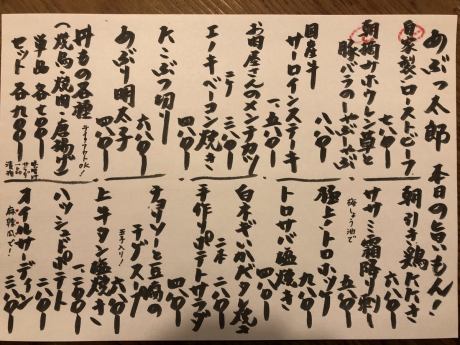 あぶっ太郎 本日の旨いもん!
自家製ローストビーフ
七八〇
朝摘みホウレン草と
豚バラのしゃぶしゃぶ
八八〇
国産牛
サーロインステーキ
一、五八〇
お肉屋さんのメンチカツ
二ケ 三八〇
エノキベーコン焼き
四八〇
たこぶつ切り
六八〇
あぶり明太子
四八〇
丼もの各種
(焼鳥・焼肉・唐揚げ)
テイクアウトOK!
単品 各七〇〇
セット 各九〇〇
味噌汁
サラダ
漬物
朝引き鶏たたき
六八〇
ササミ霜降り刺し
梅しょう油で
五八〇
極上トロホッケ
九八〇
トロサバ塩焼き
四八〇
白ネギいかバタ焼き
二本 六八〇
手作りポテトサラダ
四八〇
チョリソーと豆腐の
チゲスープ
玉子入り!
六八〇
上牛タン塩焼き
一、二八〇
ハッシュドポテト
二八〇
オイルサーディン
麻辣風で!
三八〇